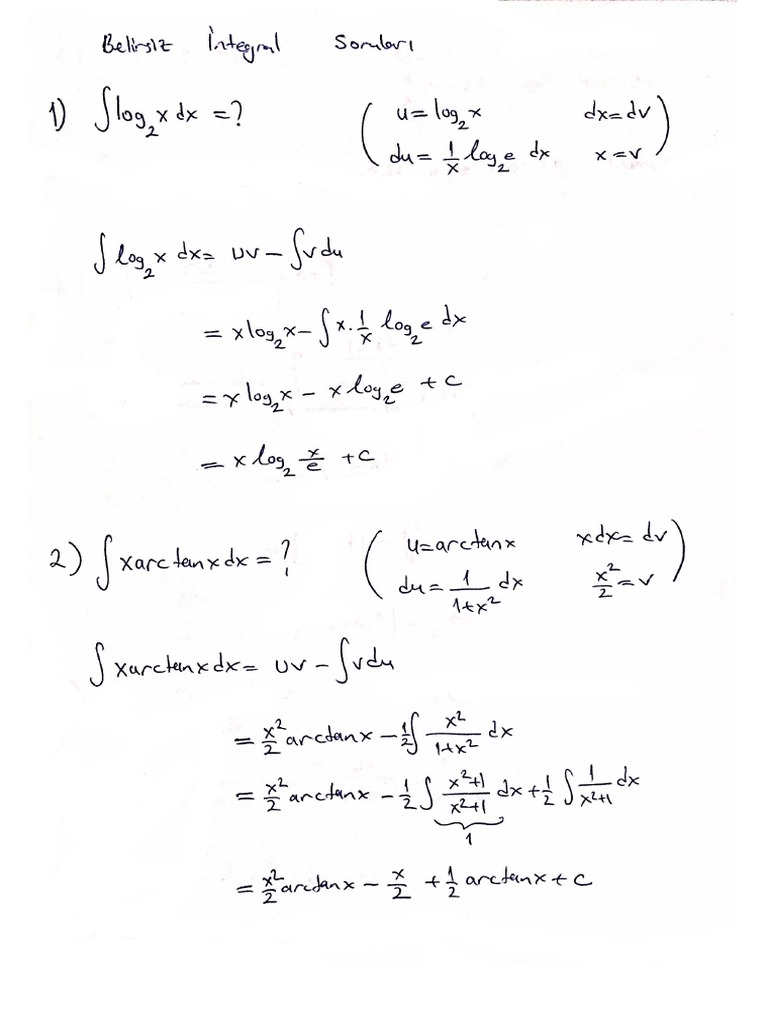 Belirsiz İntegral Soruları
1) ∫log₂x dx = ? ( u = log₂x dx = dv
du = 1/x log₂e dx x = v )
∫log₂x dx = uv − ∫v du
= x log₂x − ∫x · 1/x log₂e dx
= x log₂x − x log₂e + c
= x log₂ x/e + c
2) ∫x arctanx dx = ? ( u = arctanx xdx = dv
du = 1/(1+x²) dx x²/2 = v )
∫x arctanx dx = uv − ∫v du
= x²/2 arctanx − 1/2 ∫ x²/(1+x²) dx
= x²/2 arctanx − 1/2 ∫ (x²+1)/(x²+1) dx + 1/2 ∫ 1/(x²+1) dx
1
= x²/2 arctanx − x/2 + 1/2 arctanx + c